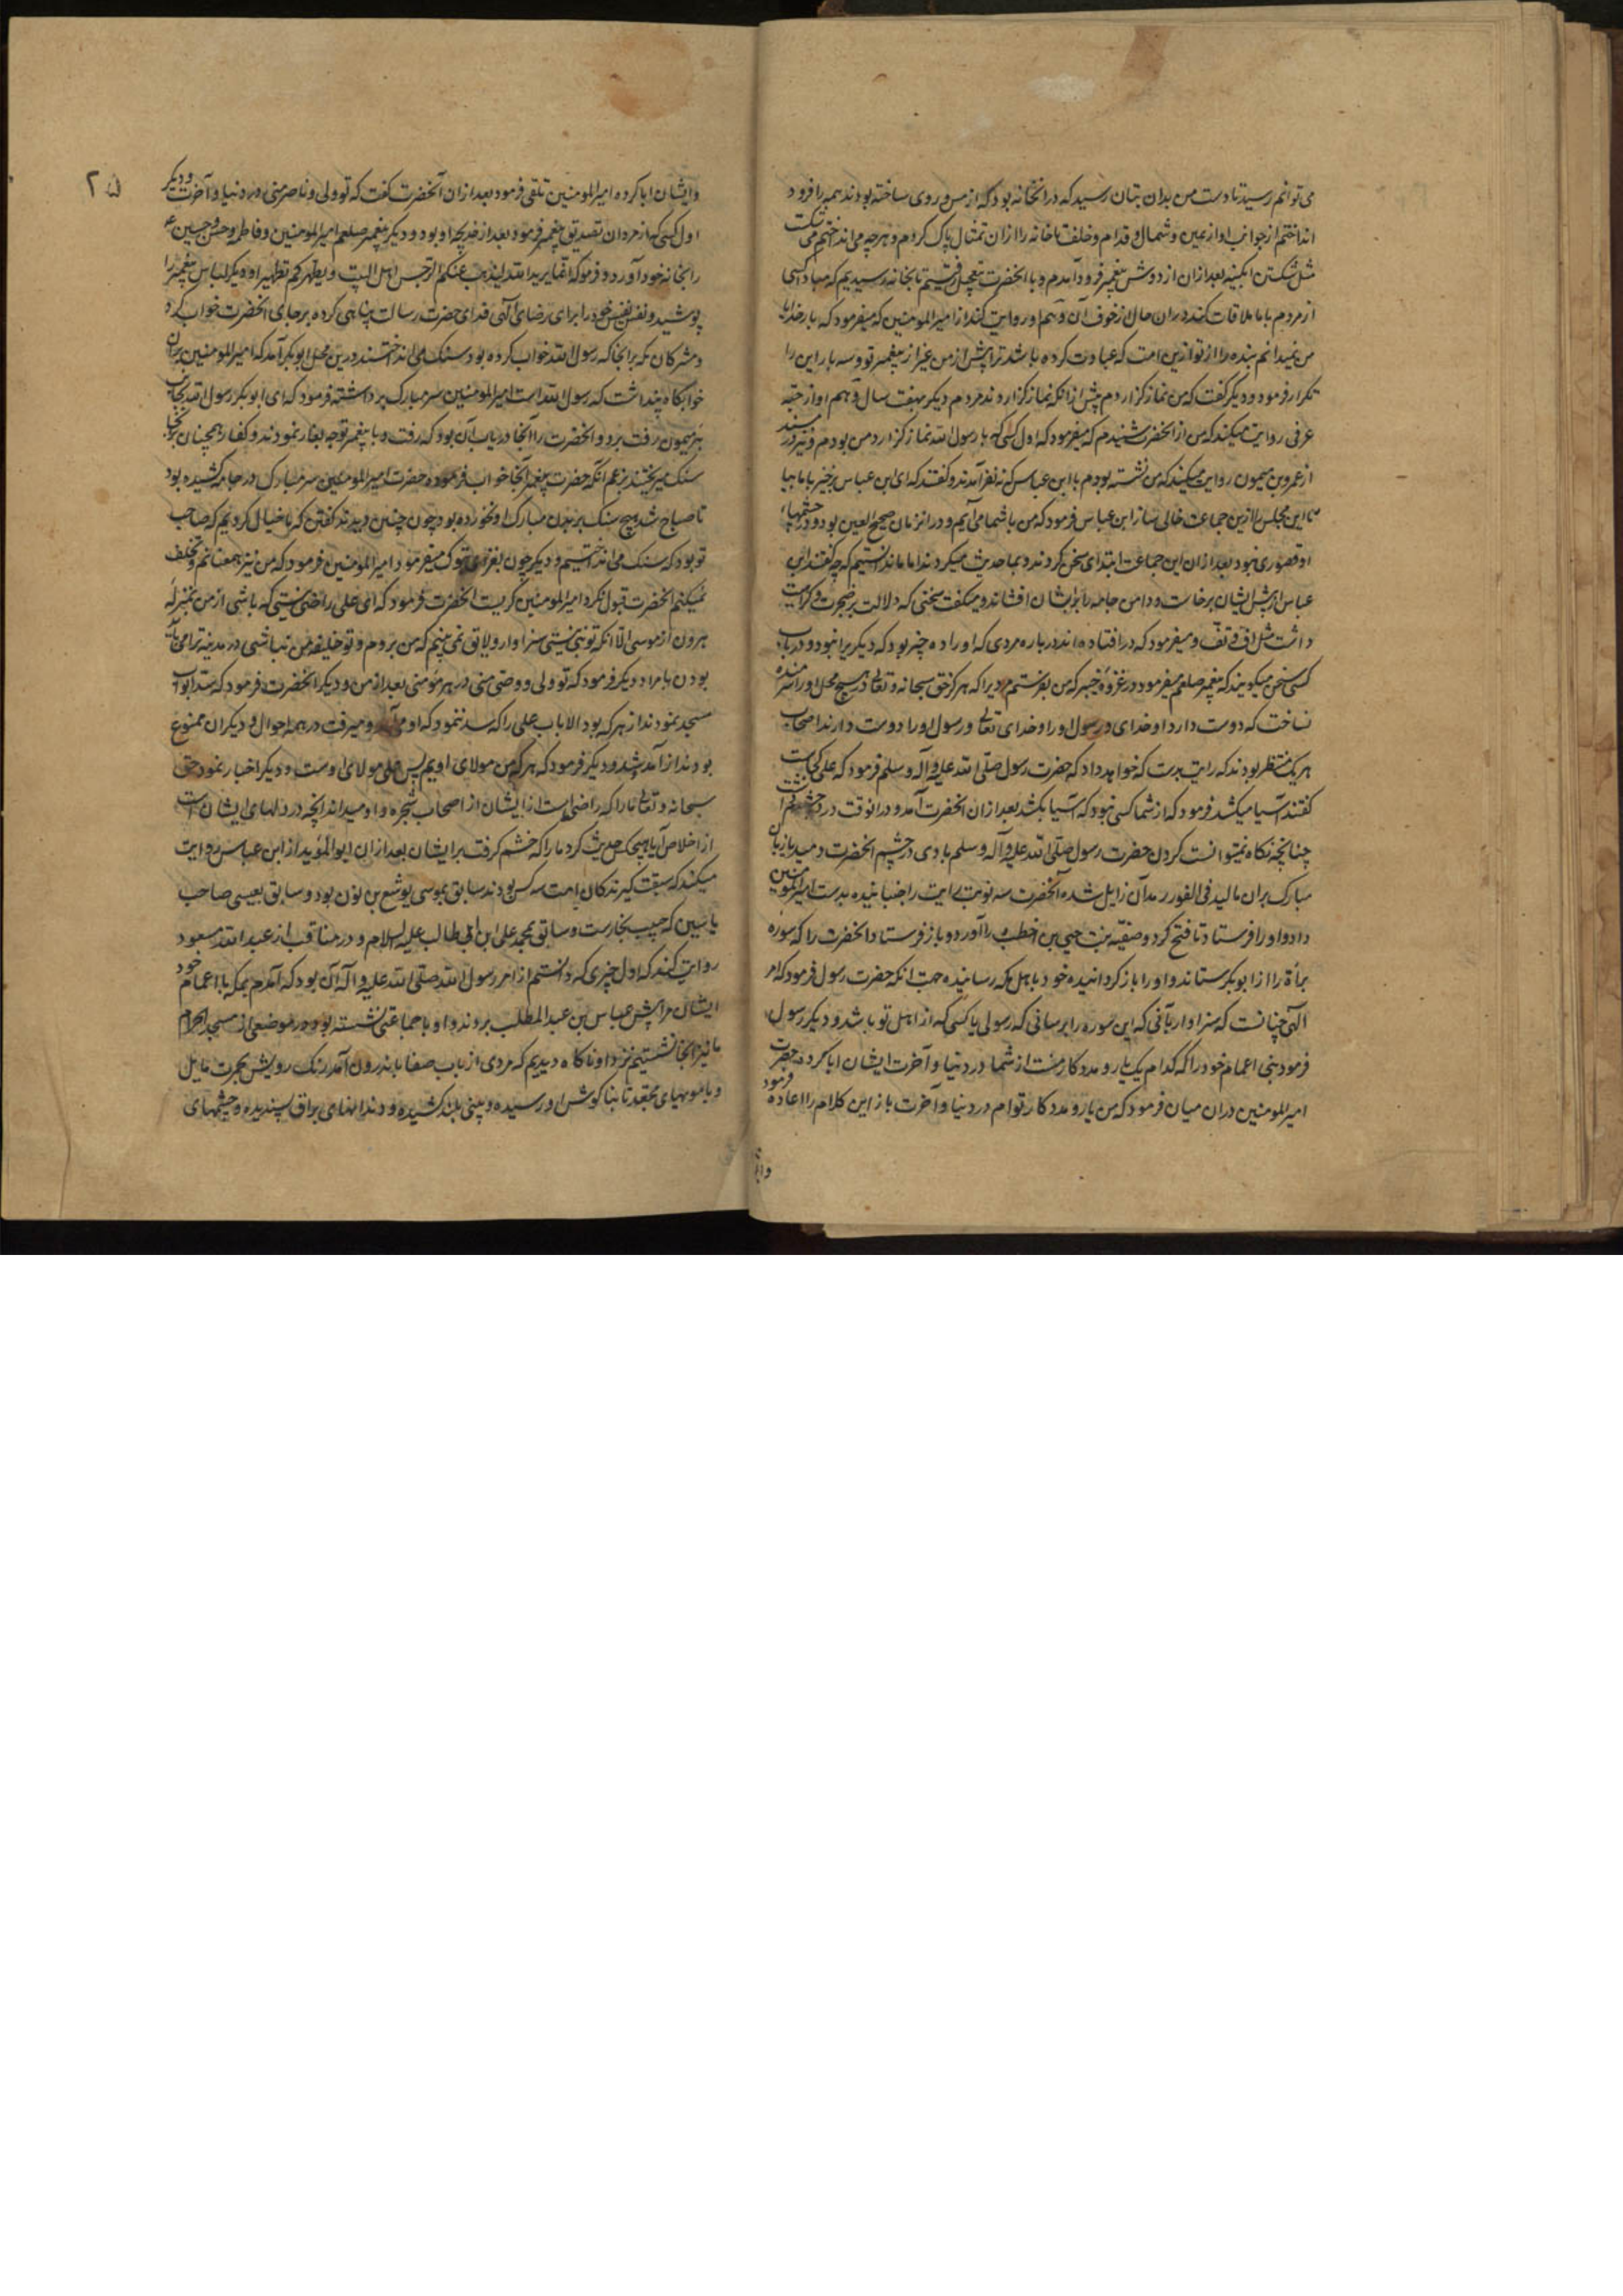 می توانم رسید تا دست من بدان بتان رسید که در آنخانه بود که از مس و روی ساخته بودند همه را فرود
انداختم از جوانب او از یمین و شمال و قدام و خلف تا خانه را از آن تمثال پاک کردم و هر چه می انداختم می شکست
مثل شکستن آبگینه بعد از آن از دوش پیغمبر فرود آمدم و با آنحضرت بتعجیل رفتیم تا بخانه رسیدیم که مبادا کسی
از مردم با ما ملاقات کند در آن حال از خوف آن و هم او روایت کند از امیرالمومنین که میفرمود که بار خدایا
من نمیدانم بنده را از تو ازین امت که عبادت کرده باشد ترا پیش از من غیر از پیغمبر تو و سه بار این را
تکرار فرمود و دیگر گفت که من نماز گزاردم پیش از آنکه نماز گزاردند مردم دیگر بهفت سال و هم او از حبّه
عرفی روایت میکند که من از آنحضرت شنیدم که میفرمود که اول کسی که با رسول الله نماز گزارد من بودم و نیز در مسند
از عمرو بن میمون روایت میکند که من نشسته بودم با ابن عباس که نه نفر آمدند و گفتند که ای ابن عباس برخیز با ما بیا
تا این مجلس را ازین جماعت خالی ساز ابن عباس فرمود که من با شما می آیم و در آنزمان صحیح العین بود و در چشمهای
او قصوری نبود بعد از آن این جماعت ابتدای سخن کردند و بما حدیث میکردند اما ما ندانستیم که چه گفتند ابن
عباس از پیش ایشان برخاست و دامن جامه را بر ایشان افشاند و میگفت سخنی که دلالت بر ضجرت و کراهت
داشت مثل اف و تف و میفرمود که در افتاده اند در باره مردی که او را ده چیز بود که دیگریرا نبود و در باب
کسی سخن میگویند که پیغمبر صلعم میفرمود در غزوه خیبر که من بفرستم مردیرا که هرگز حق سبحانه و تعالی در هیچ محل او را شرمنده
نساخت که دوست دارد او خدای و رسول او را و خدای تعالی و رسول او را دوست دارند اصحاب
هر یک منتظر بودند که رایت بدست که خواهد داد که حضرت رسول صلّی الله علیه و آله و سلم فرمود که علی کجاست
گفتند آسیا میکشد فرمود که از شما کسی نبود که آسیا بکشد بعد از آن آنحضرت آمد و در آنوقت درد چشم داشت
چنانچه نگاه نمیتوانست کردن حضرت رسول صلّی الله علیه و آله و سلم بادی در چشم آنحضرت دمید یا زبان
مبارک بر آن مالید فی الفور رمد آن زایل شد آنحضرت سه نوبت رایت را جنبانیده بدست امیرالمومنین
داد و او را فرستاد تا فتح کرد و صفیّه بنت حیی بن اخطب را آورد و باز فرستاد آنحضرت را که سوره
براة را از ابوبکر ستاند و او را باز گردانیده خود باهل مکه رسانیده جهت آنکه حضرت رسول فرمود که امر
الهی چنانست که سزاوار بآنی که این سوره را برسانی که رسولی یا کسی که از اهل تو باشد و دیگر رسول
فرمود بنی اعمام خود را که کدام یک یار و مددکار منست از شما در دنیا و آخرت ایشان ابا کرده حضرت
امیرالمومنین در آن میان فرمود که من یار و مددکار توام در دنیا و آخرت باز این کلام را اعاده فرمود
۲۵
و ایشان ابا کرده امیرالمومنین تلقی فرمود بعد از آن آنحضرت گفت که تو ولی و ناصر منی در دنیا و آخرت و دیگر
اول کسی که از مردان تصدیق پیغمبر فرمود بعد از خدیجه او بود و دیگر پیغمبر صلعم امیرالمومنین و فاطمه و حسن و حسین ع
را بخانه خود آورد و فرمود که انّما یرید الله لیذهب عنکم الرّجس اهل البیت و یطهرکم تطهیرا و دیگر لباس پیغمبر را
پوشید و نفس نفیس خود را برای رضای الهی فدای حضرت رسالت پناهی کرده بر جای آنحضرت خواب کرد
و مشرکان مکه بر آنجا که رسول الله خواب کرده بود سنگ می انداختند درین محل ابوبکر آمد که امیرالمومنین بر آن
خوابگاه پنداشت که رسول الله است امیرالمومنین سر مبارک برداشته فرمود که ای ابوبکر رسول الله بجانب
بئر میمون رفت برو و آنحضرت را آنجا دریاب آن بود که رفت و با پیغمبر توجه بغار نمودند و کفار همچنان بر آنجا
سنگ میریختند بزعم آنکه حضرت پیغمبر آنجا خواب فرموده و حضرت امیرالمومنین سر مبارک در جامه کشیده بود
تا صباح شد هیچ سنگ بر بدن مبارک او نخورده بود چون چنین دیدند گفتند که ما خیال کردیم که صاحب
تو بود که سنگ می انداختیم و دیگر چون بغزای تبوک میفرمود امیرالمومنین فرمود که من نیز همعنانم و تخلف
نمیکنم آنحضرت قبول نکرد امیرالمومنین گریست آنحضرت فرمود که ای علی راضی نیستی که باشی از من بمنزله
هرون از موسی الا آنکه تو نبی نیستی سزاوار و لایق نمی بینم که من بروم و تو خلیفه من نباشی در مدینه ترا می باید
بودن بامراد و دیگر فرمود که تو ولی و وصی منی در هر مومنی بعد از من و دیگر آنحضرت فرمود که سد ابواب
مسجد نمودند از هر که بود الا باب علی را که سد ننمود که او می آمد و میرفت در همه احوال و دیگران ممنوع
بودند از آمد شد و دیگر فرمود که هر که من مولای اویم پس علی مولای اوست و دیگر اخبار نمود حق
سبحانه و تعالی ما را که راضی است از ایشان از اصحاب شجره و او میداند آنچه در دلهای ایشان است
از اخلاص آیا هیچ حدیث کرد ما را که خشم گرفت بر ایشان بعد از آن ابو المؤید از ابن عباس روایت
میکند که سبقت گیرندگان امت سه کس بودند سابق بموسی یوشع بن نون بود و سابق بعیسی صاحب
یاسین که حبیب نجارست و سابق بمحمد علی ابن ابی طالب علیه السلام و در مناقب از عبد الله مسعود
روایت کند که اول چیزی که دانستم از امر رسول الله صلّی الله علیه و آله آن بود که آمدم بمکه با اعمام خود
ایشان مرا پیش عباس بن عبد المطلب بردند و او با جماعتی نشسته بود در موضعی از مسجد الحرام
ما نیز آنجا نشستیم نزد او ناگاه دیدیم که مردی از باب صفا باندرون آمد رنگ رویش بحمرت مایل
و با مویهای مجعد تا بناگوش او رسیده و بینی بلند کشیده و دندانهای براق سپندیده و چشمهای